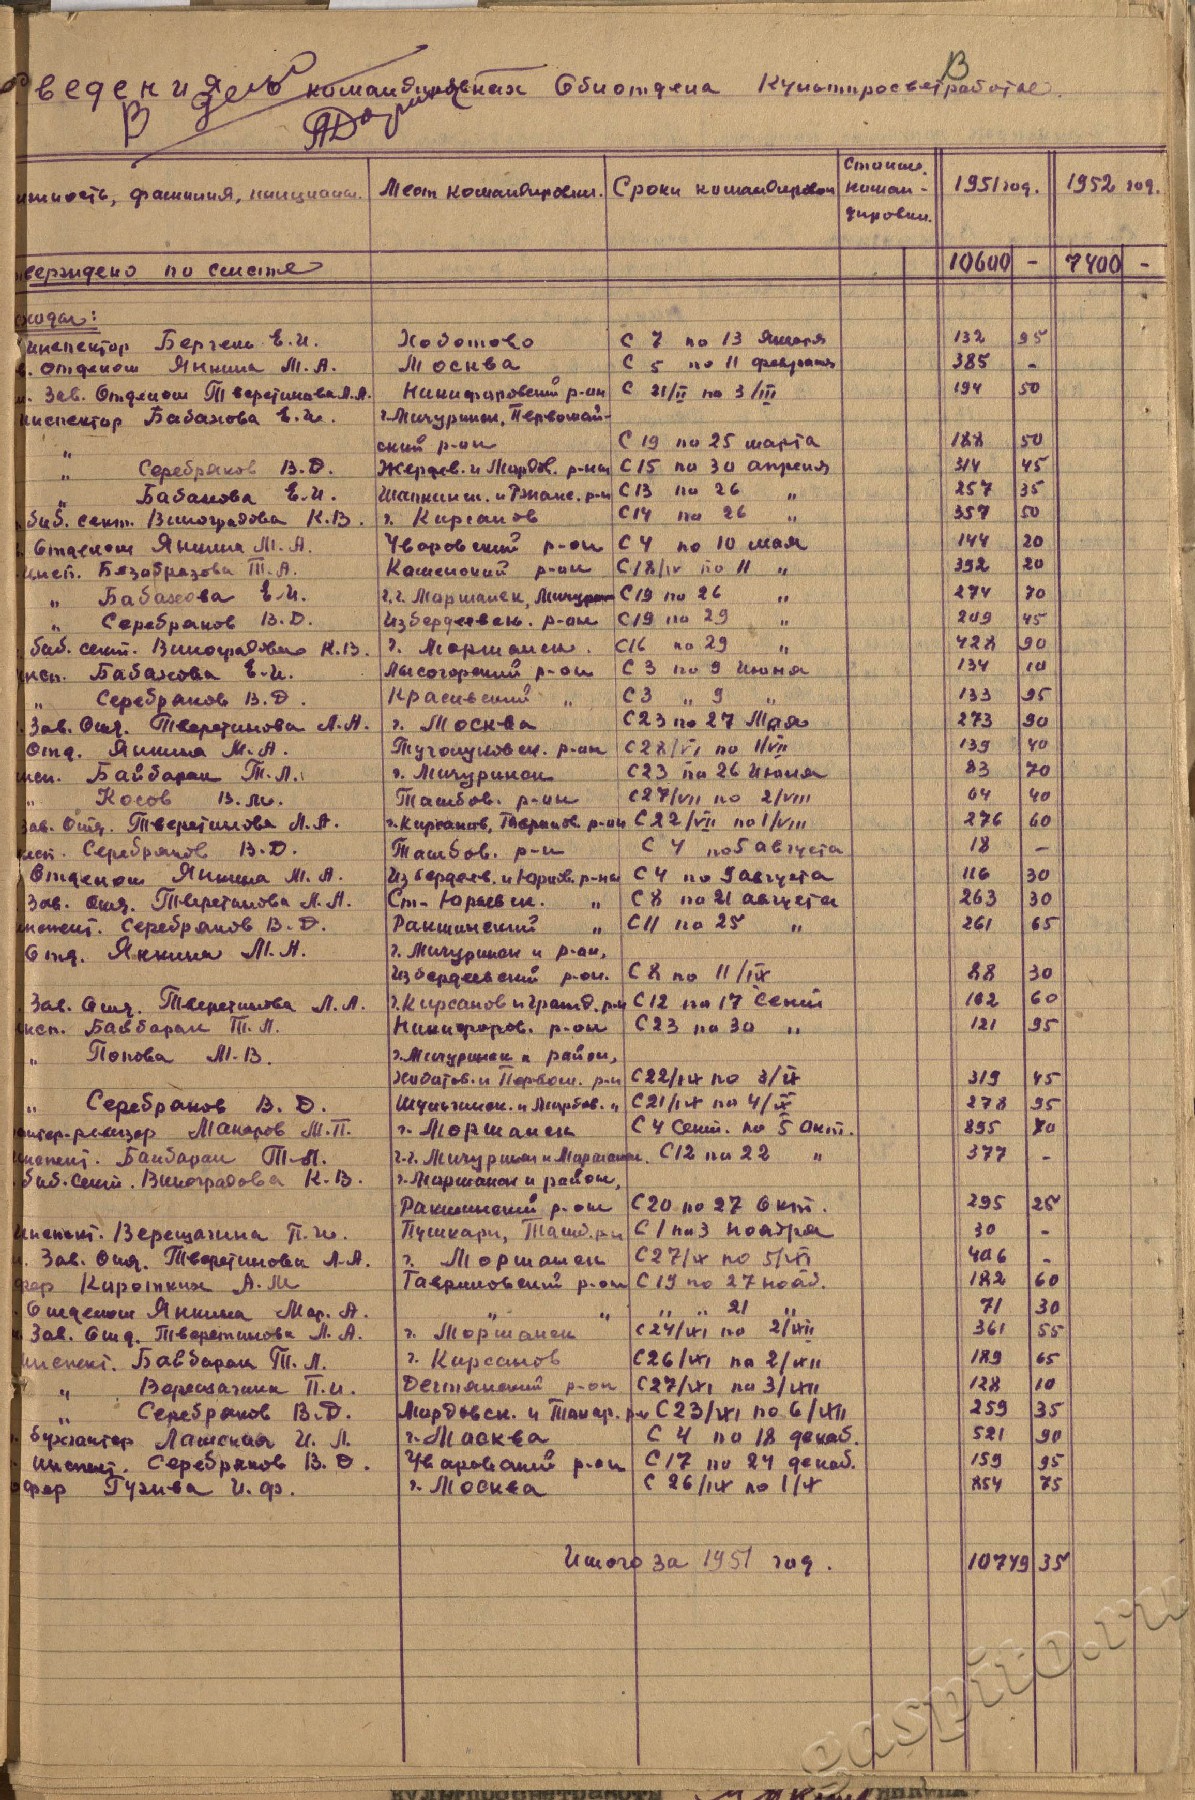 ведения о командировках Облотдела Культпросветработы.
В дело
В
жность, фамилия, инициалы. Место командировки. Сроки командировки Стоимо. командировки. 1951 год. 1952 год.
верждено по смете 10600 - 7400 -
сходы:
инспектор Берген Е.И. Хоботово С 7 по 13 Января 132 95
в. отделом Янкина М.А. Москва С 5 по 11 февраля 385 -
м. Зав. Отделом Тверетинова Л.А. Никифоровский р-он С 21/II по 3/III 194 50
инспектор Бабахова Е.И. г. Мичуринск, Первомай-
ский р-он С 19 по 25 марта 188 50
" Серебряков В.Д. Жердев. и Мордов. р-ны С 15 по 30 апреля 314 45
" Бабахова Е.И. Шапкинск. и Ржакс. р-н С 13 по 26 " 257 35
биб. сект. Виноградова К.В. г. Кирсанов С 14 по 26 " 357 50
Отделом Янкина М.А. Уваровский р-он С 4 по 10 мая 144 20
инсп. Безобразова Т.А. Каменский р-он С 18/IV по 11 " 392 20
" Бабахова Е.И. г.г. Моршанск, Мичурин С 19 по 26 " 274 70
" Серебряков В.Д. Избердеевск. р-он С 19 по 29 " 209 45
биб. сект. Виноградова К.В. г. Моршанск. С 16 по 29 " 428 90
инсп. Бабахова Е.И. Лысогорский р-он С 3 по 9 Июня 134 10
" Серебряков В.Д. Красивский " С 3 " 9 " 133 95
Зав. Отд. Тверетинова Л.А. г. Москва С 23 по 27 Мая 273 90
Отд. Янкина М.А. Туголуковск. р-он С 28/VI по 1/VII 139 40
инсп. Байбарак Т.Л. г. Мичуринск С 23 по 26 Июня 83 70
" Косов В.М. Тамбов. р-он С 27/VII по 2/VIII 64 40
Зав. Отд. Тверетинова Л.А. г. Кирсанов, Гавриков. р-он С 22/VII по 1/VIII 276 60
инсп. Серебряков В.Д. Тамбов. р-н С 4 по 5 августа 18 -
Отделом Янкина М.А. Избердеев. и Юрлов. р-ны С 4 по 9 августа 116 30
Зав. Отд. Тверетинова Л.А. Ст-Юрьевск. " С 8 по 21 августа 263 30
инспект. Серебряков В.Д. Ракшинский " С 11 по 25 " 261 65
Отд. Янкина М.А. г. Мичуринск и р-он,
Избердеевский р-он. С 8 по 11/IX 88 30
Зав. Отд. Тверетинова Л.А. г. Кирсанов и Гражд. р-н С 12 по 17 Сент 102 60
инсп. Байбарак Т.Л. Никифоров. р-он С 23 по 30 " 121 95
" Попова М.В. г. Мичуринск и район,
Хоботов. и Первом. р-н С 22/IX по 3/X 319 45
" Серебряков В.Д. Шульгинск. и Мордов. " С 21/IX по 4/X 278 95
Макаров М.П. г. Моршанск С 4 Сент. по 5 Окт. 895 70
инспект. Байбарак Т.Л. г.г. Мичуринск и Моршанск. С 12 по 22 " 377 -
биб. сект. Виноградова К.В. г. Моршанск и район,
Ракшинский р-он С 20 по 27 Окт. 295 25
инспект. Верещагина П.И. Пушкари, Тамб. р-н С 1 по 3 ноября 30 -
м. Зав. Отд. Тверетинова Л.А. г. Моршанск С 27/X по 5/XI 406 -
фер Коротких А.М Гавриловский р-он С 19 по 27 нояб. 182 60
Отделом Янкина Мар. А. " " " " 21 " 71 30
Зав. Отд. Тверетинова Л.А. г. Моршанск С 24/XI по 2/XII 361 55
инспект. Байбарак Т.Л. г. Кирсанов С 26/XI по 2/XII 189 65
" Верещагина П.И. Дегтянский р-он С 27/XI по 3/XII 128 10
" Серебряков В.Д. Мордовск. и Токар. р-н С 23/XI по 6/XII 259 35
бухгалтер Ламская И.Л. г. Москва С 4 по 18 декаб. 521 90
инспект. Серебряков В.Д. Уваровский р-он С 17 по 24 декаб. 159 95
офер Гузива И.Ф. г. Москва С 26/IX по 1/X 854 75
Итого за 1951 год. 10749 35
gaspito.ru